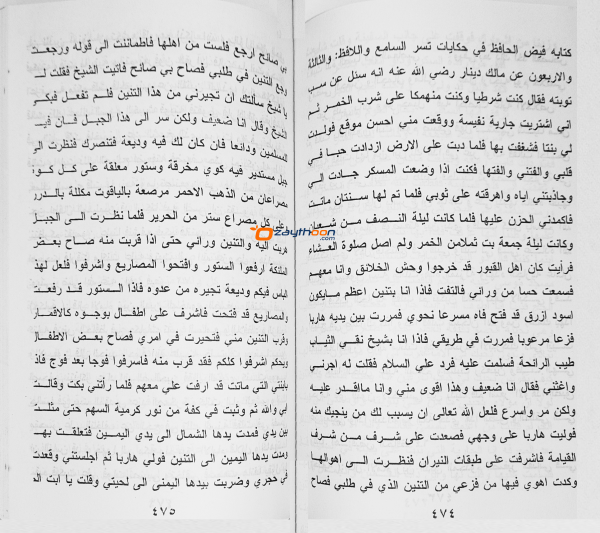 كتابه فيض الحافظ في حكايات تسر السامع واللافظ: والثالثة
والاربعون عن مالك دينار رضي الله عنه انه سئل عن سبب
توبته فقال كنت شرطيا وكنت منهمكا على شرب الخمر ثم
اني اشتريت جارية نفيسة ووقعت مني احسن موقع فولدت
لي بنتا فشغفت بها فلما دبت على الارض ازدادت حبا في
قلبي والفتني والفتها فكنت اذا وضعت المسكر جاءت الي
وجاذبتني اياه واهرقته على ثوبي فلما تم لها سنتان ماتت
فاكمدني الحزن عليها فلما كانت ليلة النصف من شعبان
وكانت ليلة جمعة بت ثملا من الخمر ولم اصل صلوة العشاء
فرأيت كان اهل القبور قد خرجوا وحش الخلائق وانا معهم
فسمعت حسا من ورائي فالتفت فاذا انا بتنين اعظم مايكون
اسود ازرق قد فتح فاه مسرعا نحوي فمررت بين يديه هاربا
فزعا مرعوبا فمررت في طريقي فاذا انا بشيخ نقي الثياب
طيب الرائحة فسلمت عليه فرد علي السلام فقلت له اجرني
واغثني فقال انا ضعيف وهذا اقوى مني وانا مااقدر عليه
ولكن مر واسرع فلعل الله تعالى ان يسبب لك من ينجيك منه
فوليت هاربا على وجهي فصعدت على شرف من شرف
القيامة فاشرفت على طبقات النيران فنظرت الى اهوالها
وكدت اهوي فيها من فزعي من التنين الذي في طلبي فصاح
٤٧٤
بي صالح ارجع فلست من اهلها فاطمأننت الى قوله ورجعت
ورجع التنين في طلبي فصاح بي صائح فاتيت الشيخ فقلت له
يا شيخ سألتك ان تجيرني من هذا التنين فلم تفعل فبكى
الشيخ وقال انا ضعيف ولكن سر الى هذا الجبل فان فيه
للمسلمين ودائعا فان كان لك فيه وديعة فتنصرك فنظرت الى
جبل مستدير فيه كوي مخرقة وستور معلقة على كل كوة
مصراعان من الذهب الاحمر مرصعة بالياقوت مكللة بالدرر
على كل مصراع ستر من الحرير فلما نظرت الى الجبل
هربت اليه والتنين ورائي حتى اذا قربت منه صاح بعض
الملئكة ارفعوا الستور وافتحوا المصاريع واشرفوا فلعل لهذا
البائس فيكم وديعة تجيره من عدوه فاذا الستور قد رفعت
والمصاريع قد فتحت فاشرف على اطفال بوجوه كالاقمار
وقرب التنين مني فتحيرت في امري فصاح بعض الاطفال
ويحكم اشرفوا كلكم فقد قرب منه فاسرفوا فوجا بعد فوج فاذا
بابنتي التي ماتت قد ارفت علي معهم فلما رأتني بكت وقالت
ابي والله ثم وثبت في كفة من نور كرمية السهم حتى مثلت
بين يدي فمدت يدها الشمال الى يدي اليمين فتعلقت بها
ومدت يدها اليمين الى التنين فولي هاربا ثم اجلستني وقعدت
في حجري وضربت بيدها اليمنى الى لحيتي وقلت يا ابت الم
٤٧٥
zaythoon.com